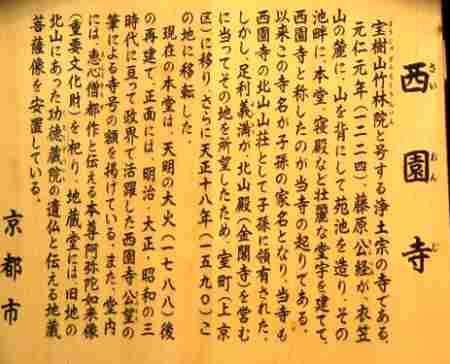 西園寺
さいおんじ
宝樹山竹林院と号する浄土宗の寺である。
元仁元年(一二二四)、藤原公経が、衣笠
山の麓に、山を背にして苑池を造り、その
池畔に、本堂・寝殿など壮麗な堂宇を建てて、
西園寺と称したのが当寺の起りである。
以来この寺名が子孫の家名となり、当寺も
西園寺の北山山荘として子孫に領有された。
しかし、足利義満が北山殿(金閣寺)を営む
に当ってその地を所望したため、室町(上京
区)に移り、さらに天正十八年(一五九〇)こ
の地に移転した。
現在の本堂は、天明の大火(一七八八)後
の再建で、正面には、明治・大正・昭和の三
時代に亘って政界で活躍した西園寺公望の
筆による寺号の額を掲げている。また、堂内
には、恵心僧都作と伝える本尊阿弥陀如来像
(重要文化財)を祀り、地蔵堂には旧地の
北山にあった功徳蔵院の遺仏と伝える地蔵
菩薩像を安置している。
京都市